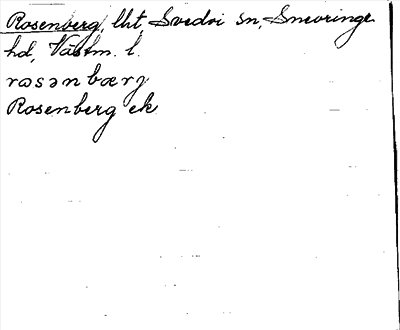 Rosenberg, lht, Svedvi sn, Snevringe
hd, Västm. l.
rɷsənbærj
Rosenberg ek